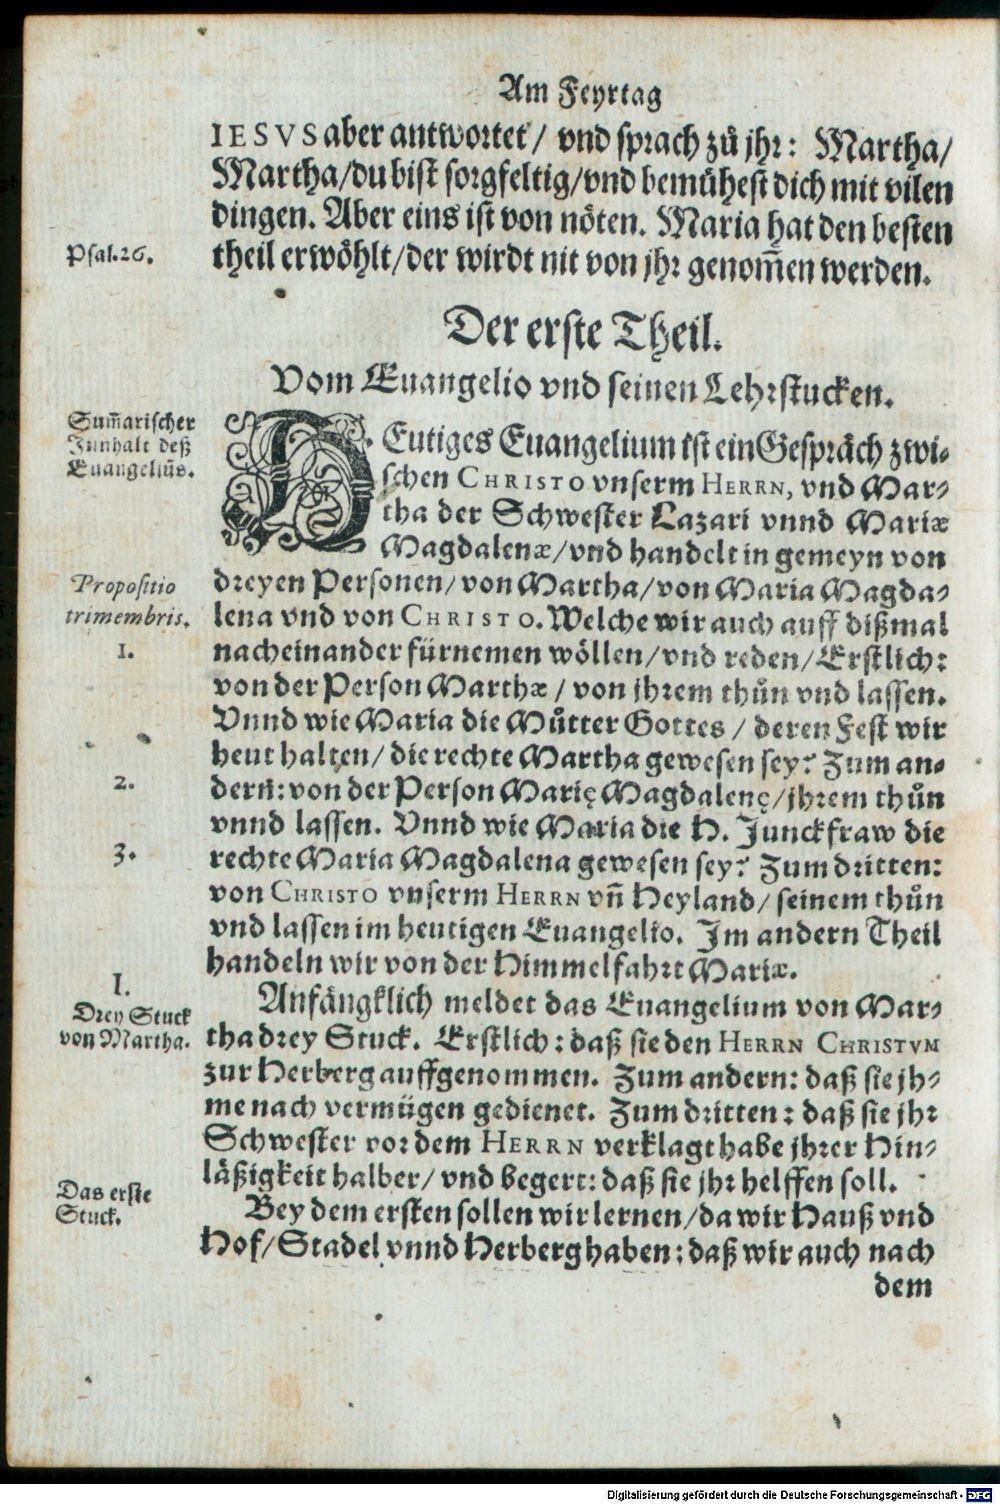 Am Feyrtag
IESVS aber antwortet/ vnd sprach zů jhr: Martha/
Martha/du bist sorgfeltig/vnd bemühest dich mit vilen
dingen. Aber eins ist von nöten. Maria hat den besten
Psal.26.
theil erwöhlt/der wirdt nit von jhr genom̃en werden.
Der erste Theil.
Vom Euangelio vnd seinen Lehrstucken.
Sum̃arischer
Innhalt deß
Euangeliũs.
HEutiges Euangelium ist ein Gespräch zwi-
schen CHRISTO vnserm HERRN, vnd Mar-
tha der Schwester Lazari vnnd Mariæ
Magdalenæ/vnd handelt in gemeyn von
Propositio
trimembris.
dreyen Personen/ von Martha/von Maria Magda-
lena vnd von CHRISTO. Welche wir auch auff dißmal
1.
nacheinander fürnemen wöllen/vnd reden/Erstlich:
von der Person Marthæ / von jhrem thůn vnd lassen.
Vnnd wie Maria die Můtter Gottes / deren Fest wir
heut halten/ die rechte Martha gewesen sey? Zum an-
2.
dern: von der Person Marię Magdalenę/jhrem thůn
vnnd lassen. Vnnd wie Maria die H. Junckfraw die
3.
rechte Maria Magdalena gewesen sey? Zum dritten:
von CHRISTO vnserm HERRN vñ Heyland/ seinem thůn
vnd lassen im heutigen Euangelio. Im andern Theil
handeln wir von der Himmelfahrt Mariæ.
I.
Drey Stuck
von Martha.
Anfängklich meldet das Euangelium von Mar-
tha drey Stuck. Erstlich: daß sie den HERRN CHRISTVM
zur Herberg auffgenommen. Zum andern: daß sie jh-
me nach vermügen gedienet. Zum dritten: daß sie jhr
Schwester vor dem HERRN verklagt habe jhrer Hin-
läßigkeit halber/ vnd begert: daß sie jhr helffen soll.
Das erste
Stuck.
Bey dem ersten sollen wir lernen/da wir Hauß vnd
Hof/Stadel vnnd Herberg haben: daß wir auch nach
dem
Digitalisierung gefördert durch die Deutsche Forschungsgemeinschaft - DFG